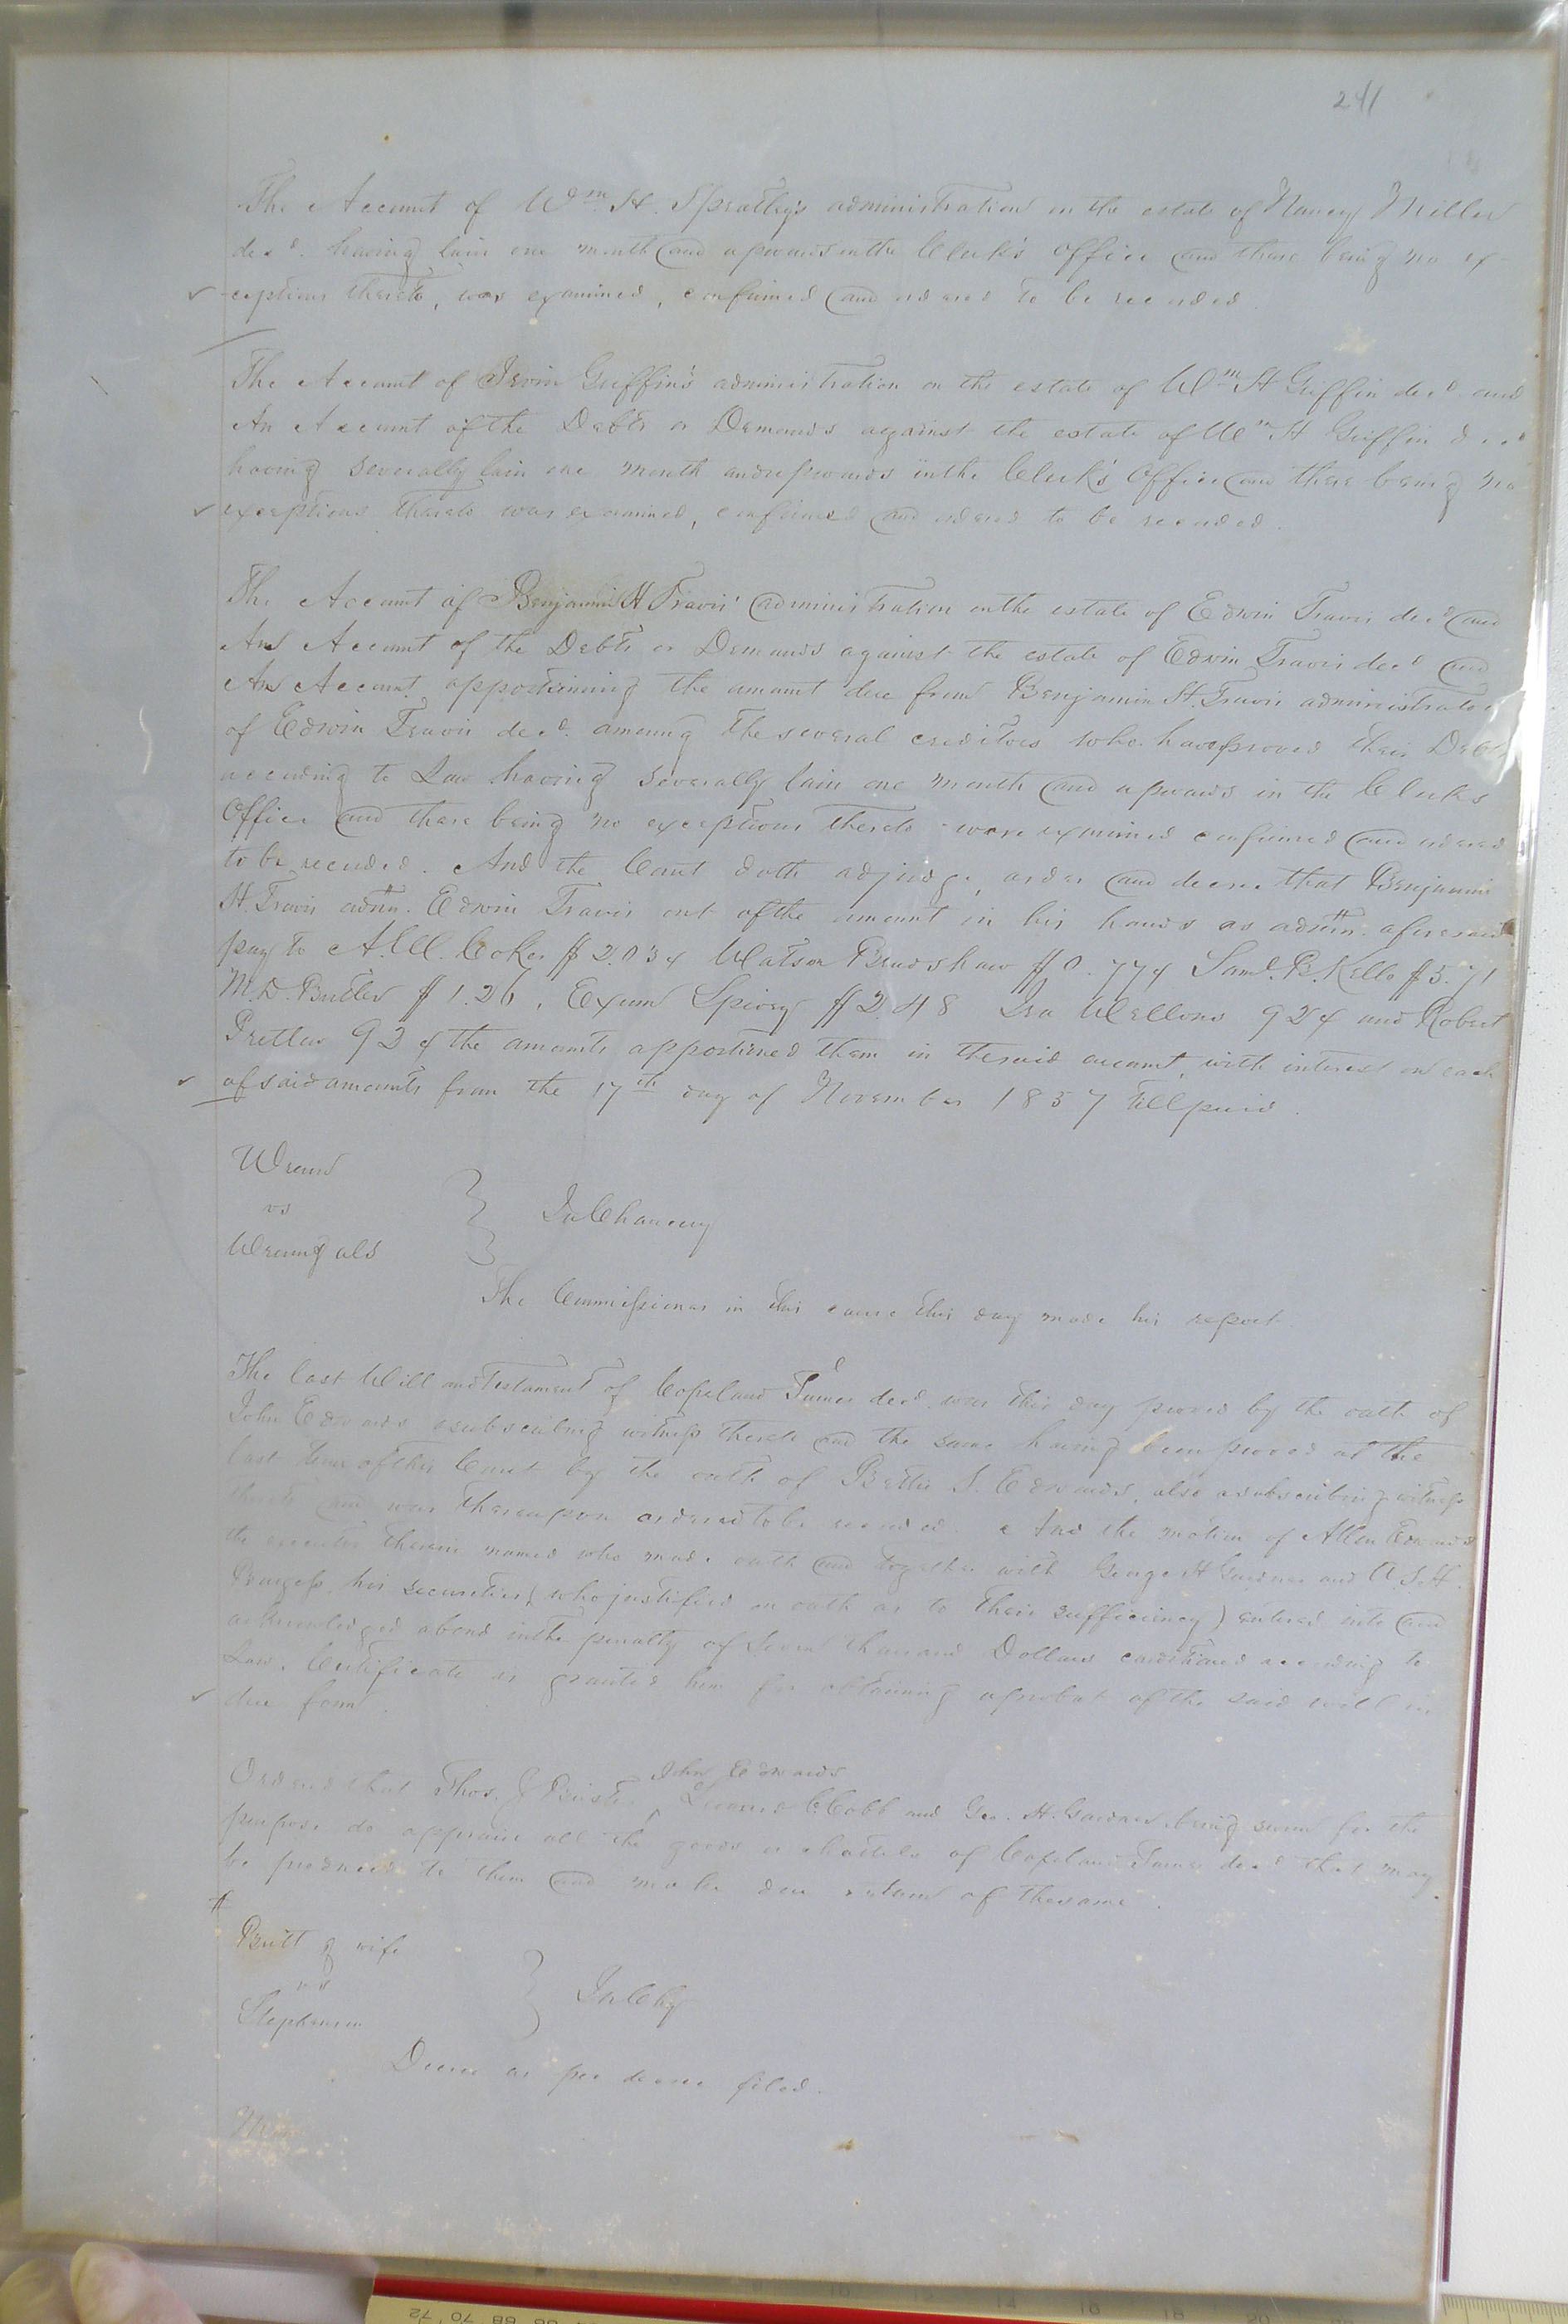 241
The Account of Wm. H. Spratley's administration on the estate of Nancy Miller
decd. having lain one month and upwards in the Clerk's Office and there being no ex-
ceptions thereto, was examined, confirmed and ordered to be recorded.
The Account of Irvin Griffin's administration on the estate of Wm. H Griffin decd. and
An Account of the Debts or Demands against the estate of Wm H Griffin decd
having severally lain one month and upwards in the Clerk's Office and there being no
exceptions thereto was examined, confirmed and ordered to be recorded.
The Account of Benjamin H Travis' administration on the estate of Edwin Travis decd and
An Account of the Debts or Demands against the estate of Edwin Travis decd and
An Account apportioning the amount due from Benjamin H. Travis administrator
of Edwin Travis decd. among the several creditors who have proved their Debts
according to Law having severally lain one month and upwards in the Clerks
Office and there being no exceptions thereto were examined confirmed and ordered
to be recorded. And the Court doth adjudge, order and decree that Benjamin
H. Travis admr. Edwin Travis out of the amount in his hands as admr. aforesaid
pay to Coker $2.03 Watson Bradshaw $0.77 Saml. B. Kello $5.71
M. D. Butler $1.26, Exum Spivey $2.48 Ira Wellons 92 and Robert
Pretlow 92 the amounts apportioned them in the said account, with interest on each
of said amounts from the 17th day of November 1857 till paid.
Wrenn
vs
Wrenn & als
In Chancery
The Commissioner in this cause this day made his report.
The last Will and Testament of Copeland Turner decd. was this day proved by the oath of
John Edwards a subscribing witness thereto and the same having been proved at the
last term of this Court by the oath of Bettie S. Edwards, also a subscribing witness
thereto and was thereupon ordered to be recorded. And the motion of Allen Edwards
the executor therein named who made oath and together with George H Gardner and
Burgess his securities (who justified on oath as to their sufficiency) entered into and
acknowledged a bond in the penalty of Seven thousand Dollars conditioned according to
Law, Certificate is granted him for obtaining a probat of the said will in
due form.
John Edwards
Ordered that Thos. J Leonard C Cobb and Geo. H. Gardner being sworn for the
purpose do appraise all the goods or chattels of Copeland Turner decd that may
be produced to them and make due return of the same.
Britt & wife
vs
Stephenson
In Chy
Decree as per decree filed.